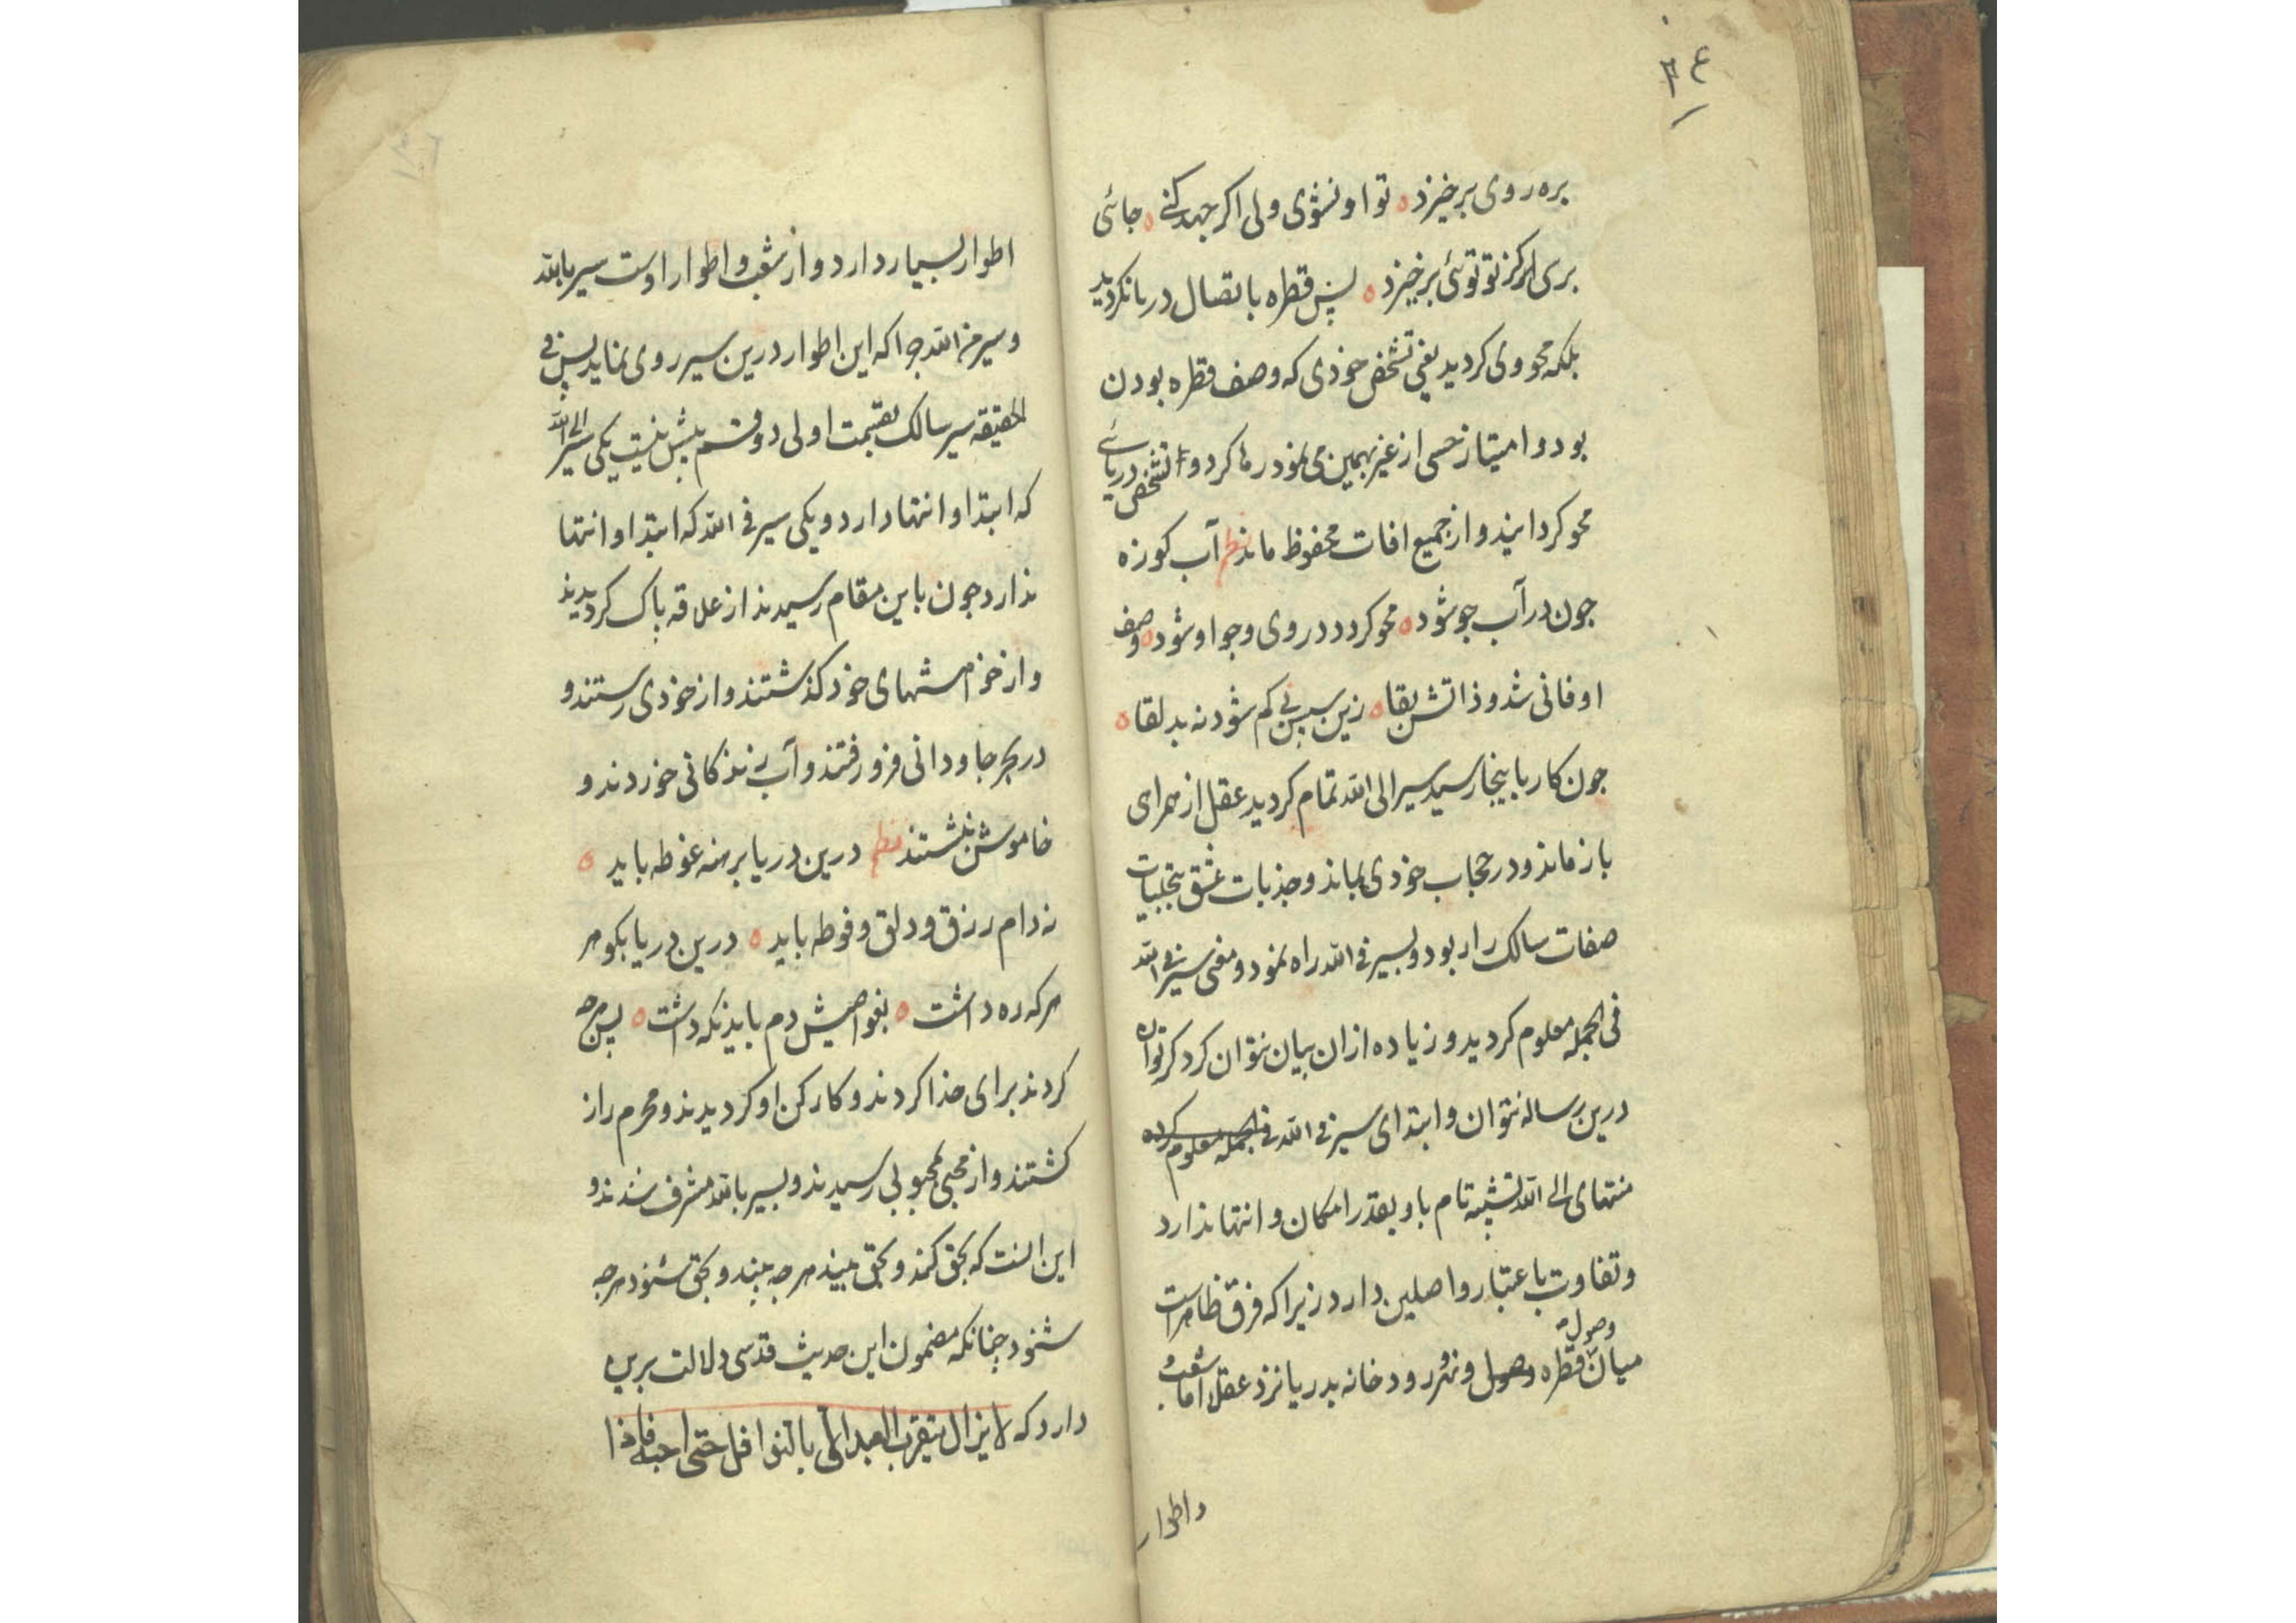 ۳۴
بره روی برخیزد ه تو او نشوی ولی اکر جهد کنی ه جائی
بری کز تو توئی برخیزد ه پس قطره باتصال دریا نکردید
بلکه محو وی کردید یعنی تشخص خودی که وصف قطره بودن
بود و امتیاز حسی از غیر بهمین می نمود رها کرد و تشخص دریائی
محو کردانیند و از جمیع افات محفوظ ماند نظم آب کوزه
جون در آب جو شود ه محو کردد در وی و جو او شود ه وصف
او فانی شد و ذاتش بقا ه زین سپس نی کم شود نه بد لقا ه
جون کار باینجا رسید سیر الی الله تمام کردید عقل از همراهی
باز ماند و در حجاب خودی بماند و جذبات عشق بتجلیات
صفات سالک را ربود و بسیر فی الله راه نمود و معنی سیر فی الله
فی الجمله معلوم کردید و زیاده ازان بیان نتوان کرد کر توان
درین رساله نتوان و ابتدای سیر فی الله فی الجمله معلوم کرده
منتهای الی الله تشبه تام باو بقدر امکان و انتها ندارد
و تفاوت باعتبار واصلین دارد زیرا که فرق ظاهر است
وصول
میان قطره وصول و نهر و رودخانه بدریا نزد عقلا اما شعب و
و اطوار
اطوار بسیار دارد و از شعب و اطوار اوست سیر بالله
و سیر من الله جرا که این اطوار درین سیر روی نماید پس فی
الحقیقه سیر سالک بقسمت اولی دو قسم بیش نیست یکی سیر الی الله
که ابتدا و انتها دارد و یکی سیر فی الله که ابتدا و انتها
ندارد جون باین مقام رسیدند از علاقه پاک کردیدند
و از خواهشهای خود کذشتند و از خودی رستند و
در بحر جاودانی فرو رفتند و آب زندکانی خوردند و
خاموش نشستند نظم درین دریا برهنه غوطه باید ه
نه دام رزق و دلق و فوطه باید ه درین دریا بکوهر
هر که ره داشت ه بغواصیش دم باید نکه داشت ه پس هرجه
کردند برای خدا کردند و کارکن او کردیدند و محرم راز
کشتند و از محبی بمحبوبی رسیدند و بسیر بالله مشرف شدند و
این آنست که بحق کند و بحق بیند هرجه بیند و بحق شنود هرجه
شنود چنانکه مضمون این حدیث قدسی دلالت برین
دارد که لا یزال یتقرب العبد الی بالنوافل حتی احبه فاذا